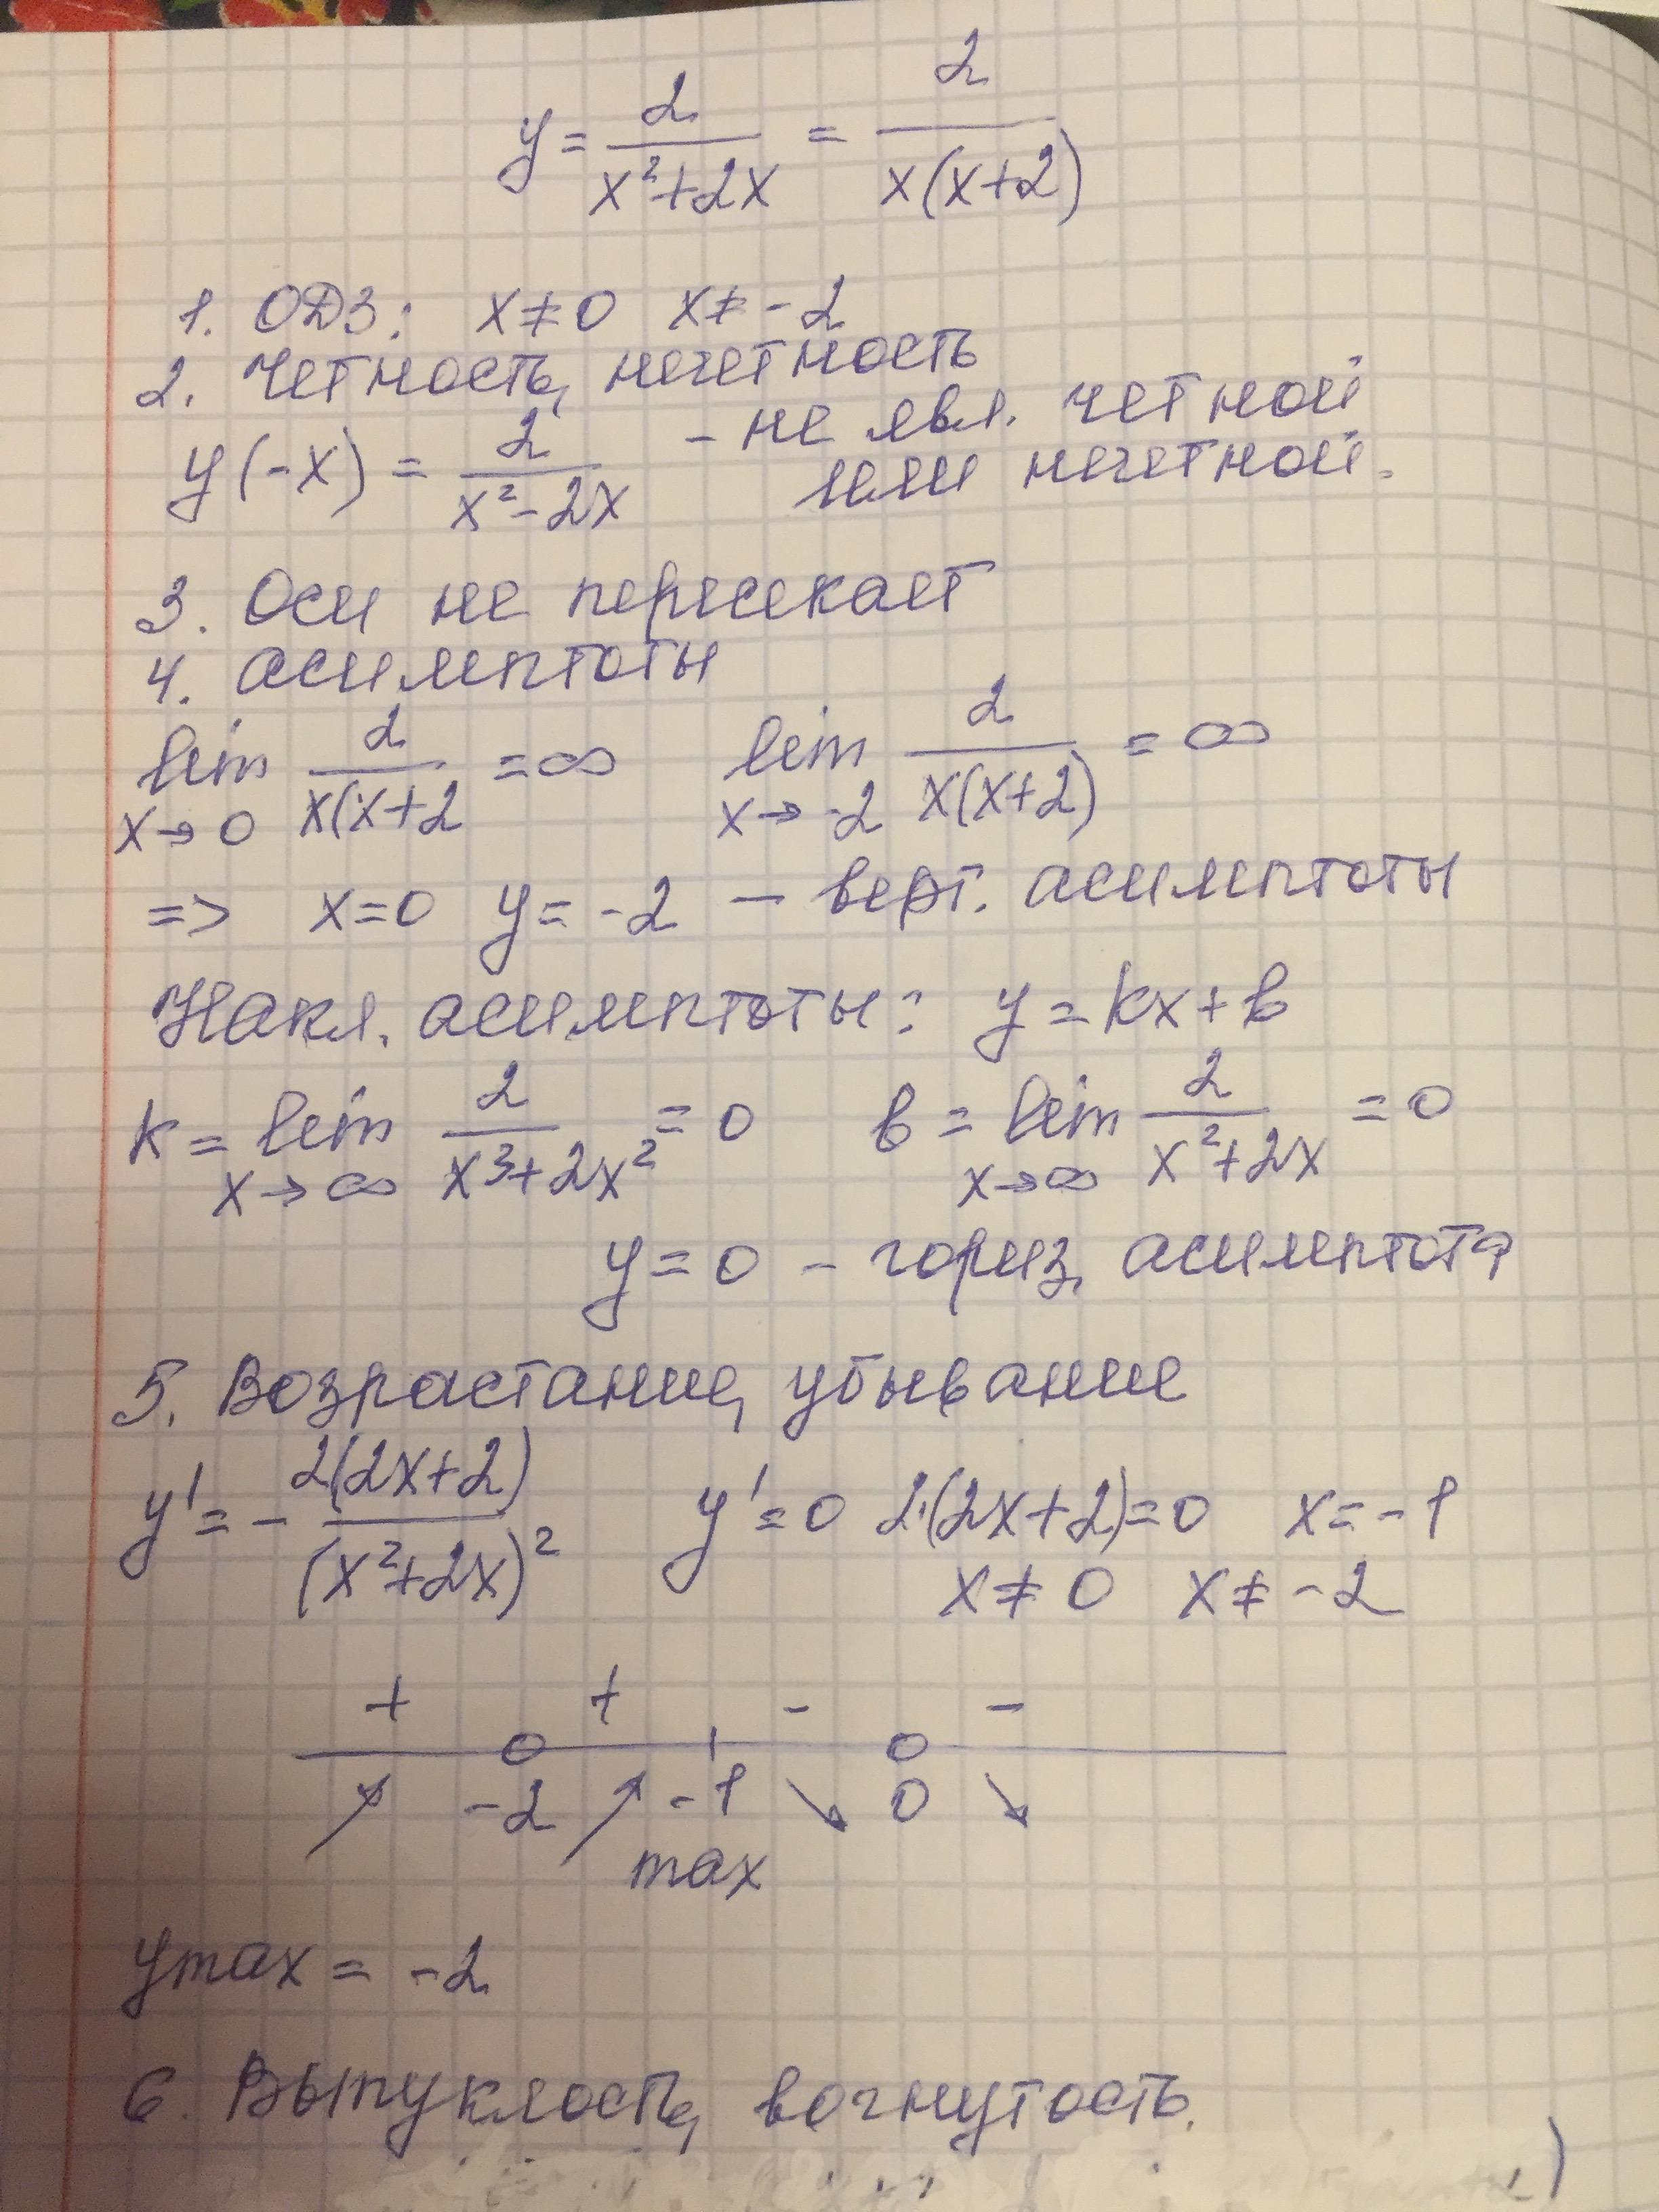 y = 2/(x²+2x) = 2/(x(x+2))
1. ОДЗ: x≠0 x≠-2
2. Четность, нечетность
y(-x) = 2/(x²-2x) - не явл. четной
или нечетной.
3. Оси не пересекает
4. асимптоты
lim x→0 2/(x(x+2 = ∞ lim x→-2 2/(x(x+2)) = ∞
=> x=0 y=-2 - верт. асимптоты
Накл. асимптоты: y=kx+b
k = lim x→∞ 2/(x³+2x²) = 0 b = lim x→∞ 2/(x²+2x) = 0
y=0 - гориз. асимптота
5. Возрастание, убывание
y' = - 2(2x+2)/(x²+2x)² y'=0 2·(2x+2)=0 x=-1
x≠0 x≠-2
+ + - -
-2 -1 0
max
ymax = -2
6. Выпуклость, вогнутость.